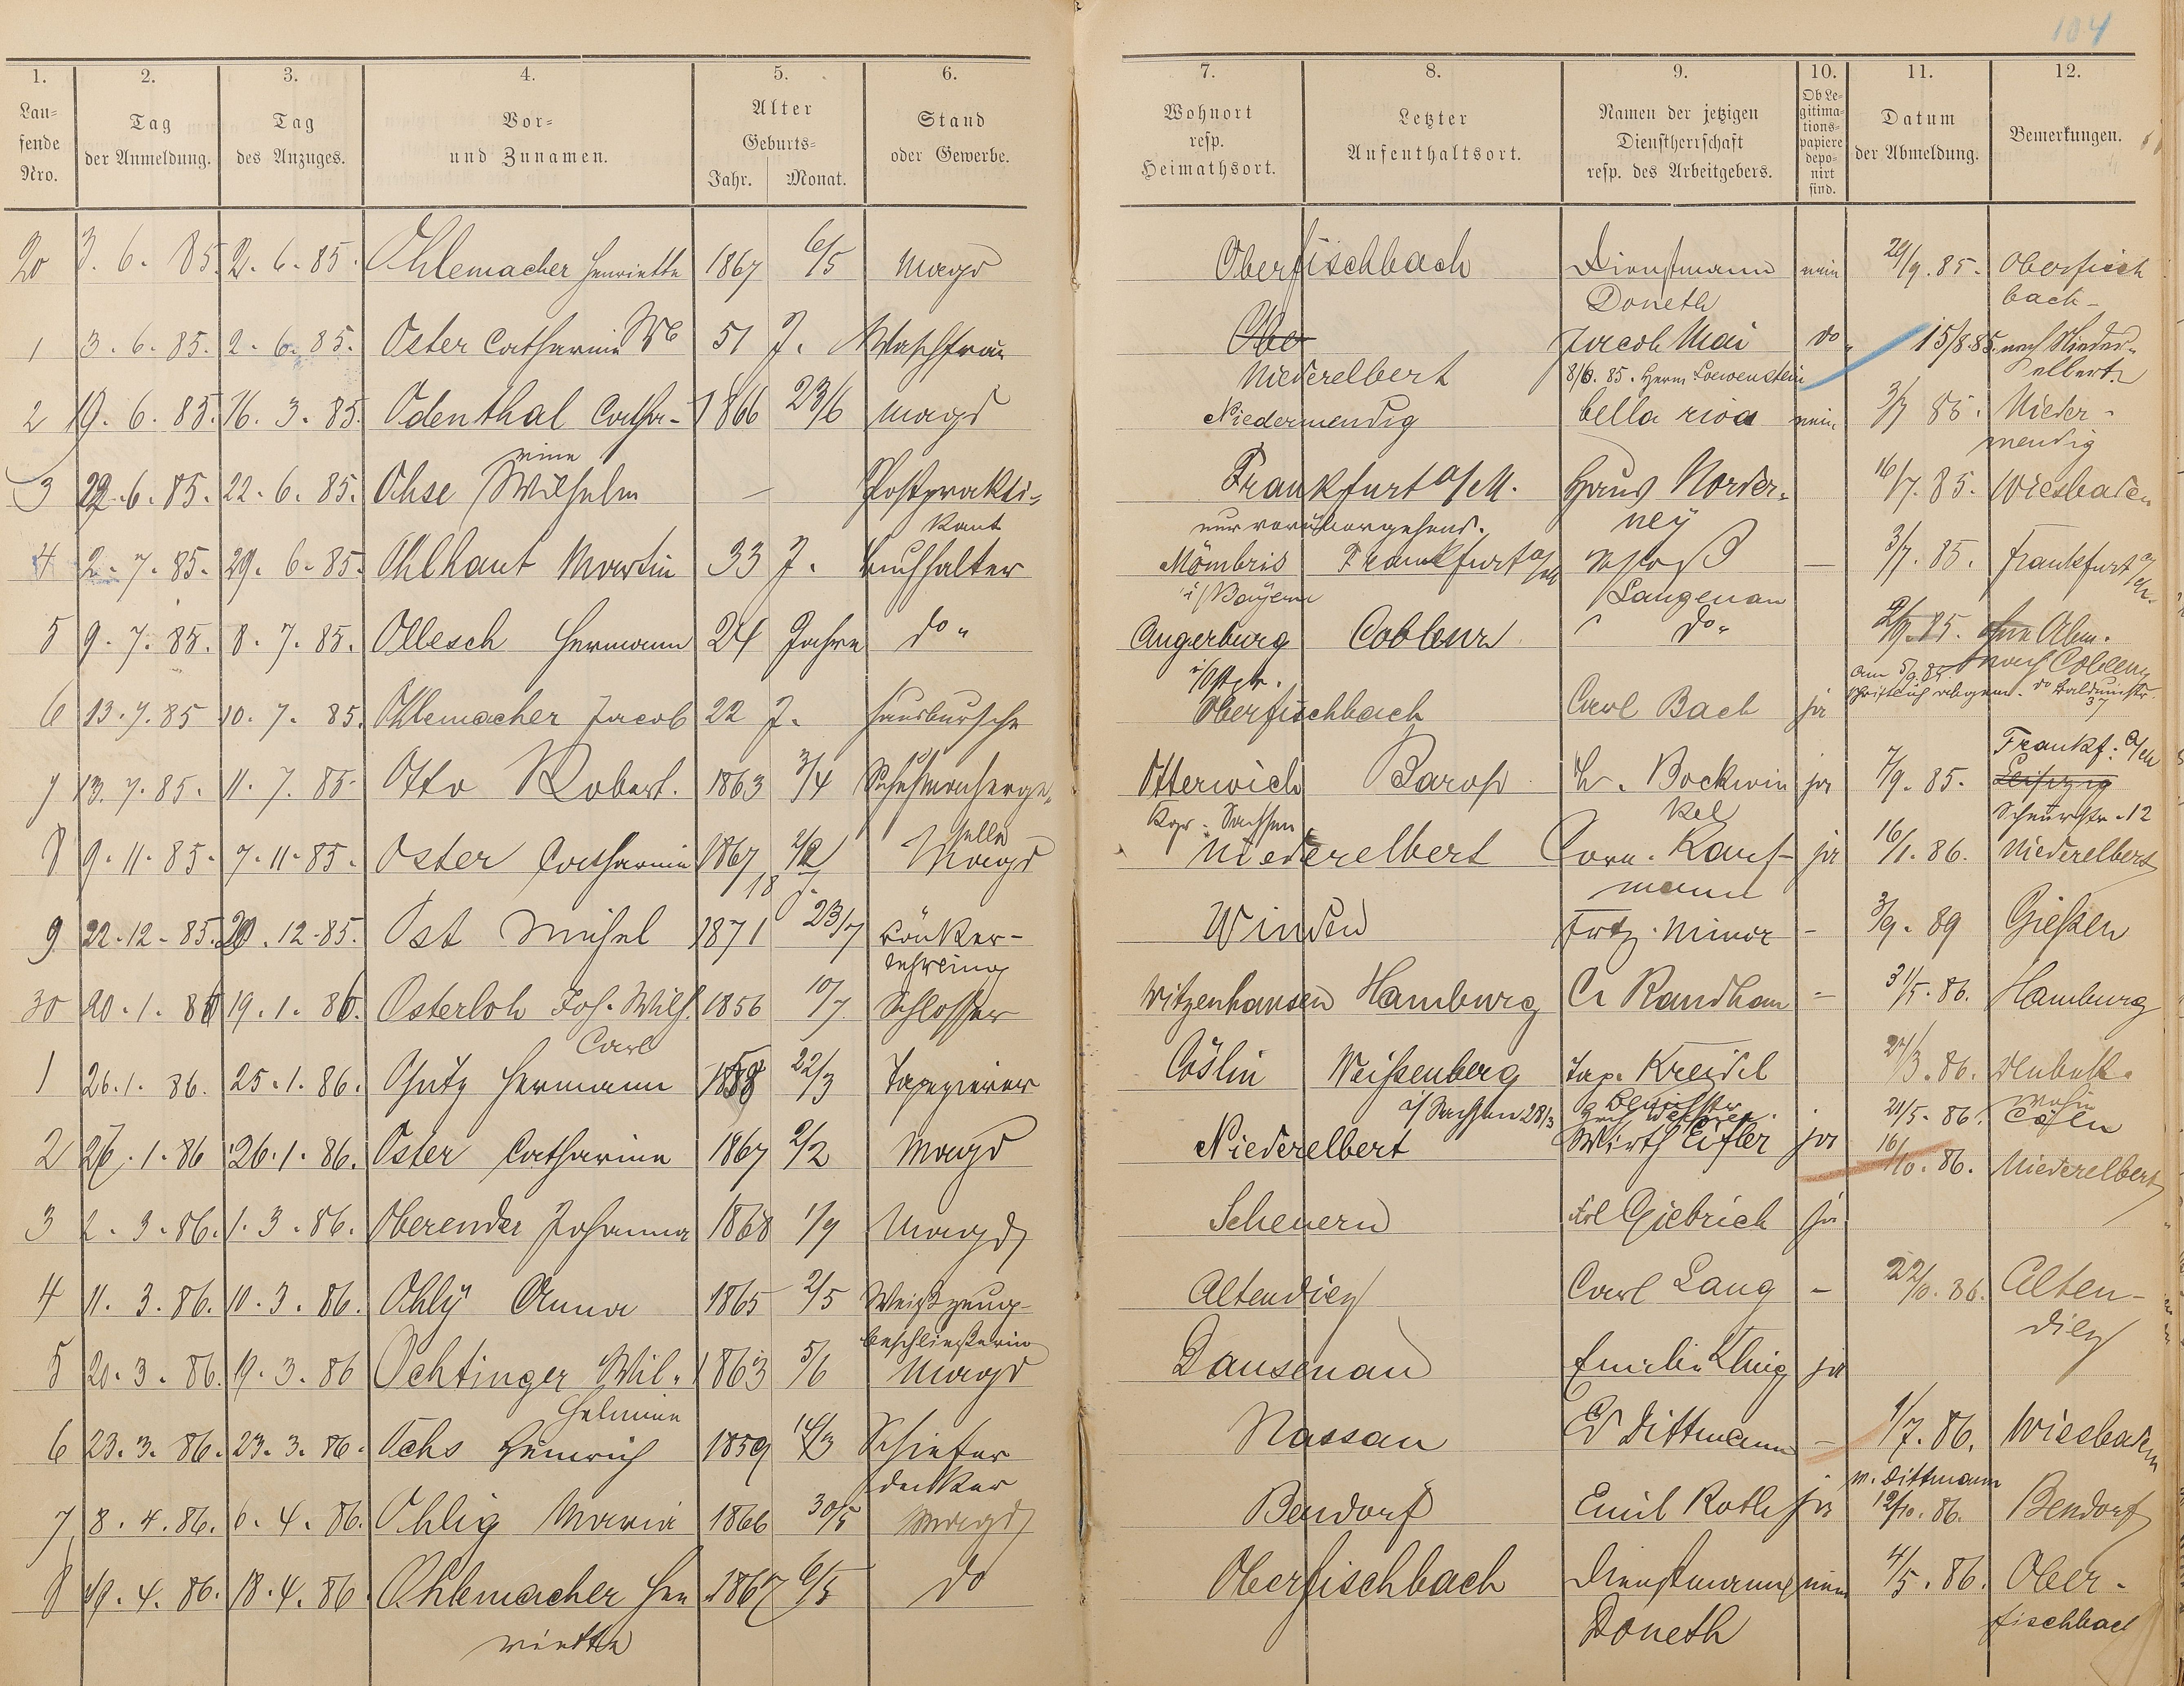 104
1. 2. 3. 4. 5. 6. 7. 8. 9. 10. 11. 12.
Lau=
fende
Nro.
Tag
der Anmeldung.
Tag
des Anzuges.
Vor=
und Zunamen.
Alter
Geburts=
Jahr. Monat.
Stand
oder Gewerbe.
Wohnort
resp.
Heimathsort.
Letzter
Aufenthaltsort.
Namen der jetzigen
Dienstherrschaft
resp. des Arbeitgebers.
Ob Le=
gitima=
tions=
papiere
depo=
nirt
sind.
Datum
der Abmeldung.
Bemerkungen.
20 3. 6. 85. 2. 6. 85. Ohlemacher Henriette 1867 6/5 Magd Oberfischbach Dienstmann nein 29/9. 85. Oberfisch
Doneth bach
1 3. 6. 85. 2. 6. 85. Oster Catharina We 51 J. Waschfrau Obe Jacob Mai do 15/8. 85. nach Nieder-
Niederelbert 8/6. 85. Herm. Loewenstein elbert
2 19. 6. 85. 16. 3. 85. Odenthal Catha- 1866 23/6 Magd Niedermendig bella riva nein 3/7 85. Nieder-
rine mendig
3 22. 6. 85. 22. 6. 85. Ohse Wilhelm — Postprakti- Frankfurt a/M. Haus Norder- 16/7. 85. Wiesbaden
kant nur vorübergehend. ney
4 2. 7. 85. 29. 6. 85. Ohlhaut Martin 33 J. Buchhalter Mömbris Frankfurt a/M Schloß — 3/7. 85. Frankfurt a/M.
i/Bayern Langenau
5 9. 7. 85. 8. 7. 85. Ollesch Hermann 24 Jahre do " Angerburg Coblenz do " 2/9. 85. ohne Abm.
i/Ostpr. am 5/9 85 nach Coblenz
schriftlich abgem.
6 13. 7. 85 10. 7. 85. Ohlemacher Jacob 22 J. Hausbursche Oberfischbach Carl Bach ja 37
7 13. 7. 85. 11. 7. 85. Otto Robert. 1863 3/4 Schuhmacherge- Otterwich L. Bockwin ja 7/9. 85. Frankf. a/M
selle Kgr. Sachsen kel Leipzig
Scheurstr. 12
8 9. 11. 85. 7. 11. 85. Oster Catharina 1867 2/2 Magd Niederelbert Kauf- ja 16/1. 86. Niederelbert
18 J. mann
9 22. 12. 85. 20. 12. 85. Ost Michel 1871 23/7 Bäcker- Winden Frtz. Minor - 3/9. 89 Gießen
lehrling
30 20. 1. 86 19. 1. 86. Osterloh Joh. Wilh. 1856 10/7 Schlosser Witzenhausen Hamburg C. Randhan - 31/5. 86. Hamburg
Carl
1 26. 1. 86. 25. 1. 86. Hermann 1858 22/3 Tapezierer Cöslin Weißenberg Tap. Kreidel 24/3. 86.
i/Sachsen 28/3 21/5. 86. Cöln
2 27. 1. 86 26. 1. 86. Oster Catharina 1867 2/2 Magd Niederelbert Wirth Eifler ja 16/10. 86. Niederelbert
3 2. 3. 86. 1. 3. 86. Oberender Johanna 1868 1/9 Magd Scheuern Frl Giebrich ja
4 11. 3. 86. 10. 3. 86. Ohly Anna 1865 2/5 Weißzeug- Altendiez Carl Lang - Alten-
beschließerin diez
5 20. 3. 86. 19. 3. 86 Ochtinger Wil- 1863 5/6 Magd Dausenau Emilie Klug ja
helmine
6 23. 3. 86. 23. 3. 86. Ochs Heinrich 1859 Schiefer Nassau Ed Dittmann - 1/7. 86. Wiesbaden
decker m. Dittmann
7 8. 4. 86. 6. 4. 86. Ohlig Maria 1866 30/5 Magd Bendorf Emil Roth ja 12/10. 86. Bendorf
8 19. 4. 86. 18. 4. 86. Ohlemacher Hen 1867 6/5 do Oberfischbach Dienstmann nein 4/5. 86. Ober-
riette Doneth fischbach